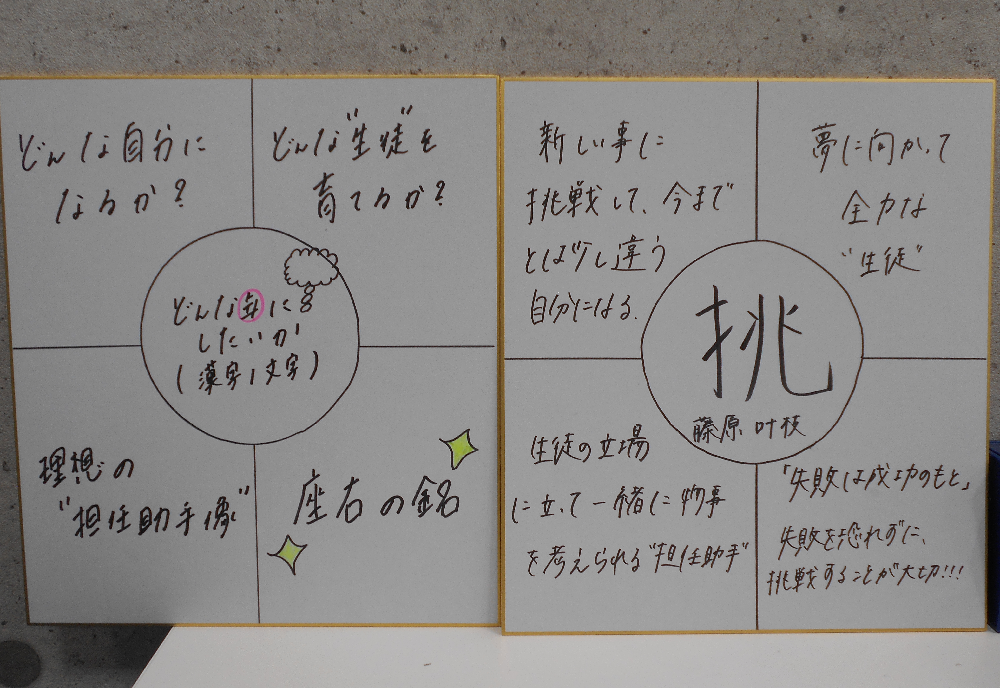 どんな自分に
なるか？
どんな“生徒”を
育てるか？
どんな
に
したいか
(漢字1文字)
理想の
“担任助手像”
座右の銘
新しい事に
挑戦して、今まで
とは少し違う
自分になる.
夢に向かって
全力な
“生徒”
挑
藤原 叶枝
生徒の立場
に立って一緒に物事
を考えられる“担任助手”
「失敗は成功のもと」
失敗を恐れずに、
挑戦することが大切!!!